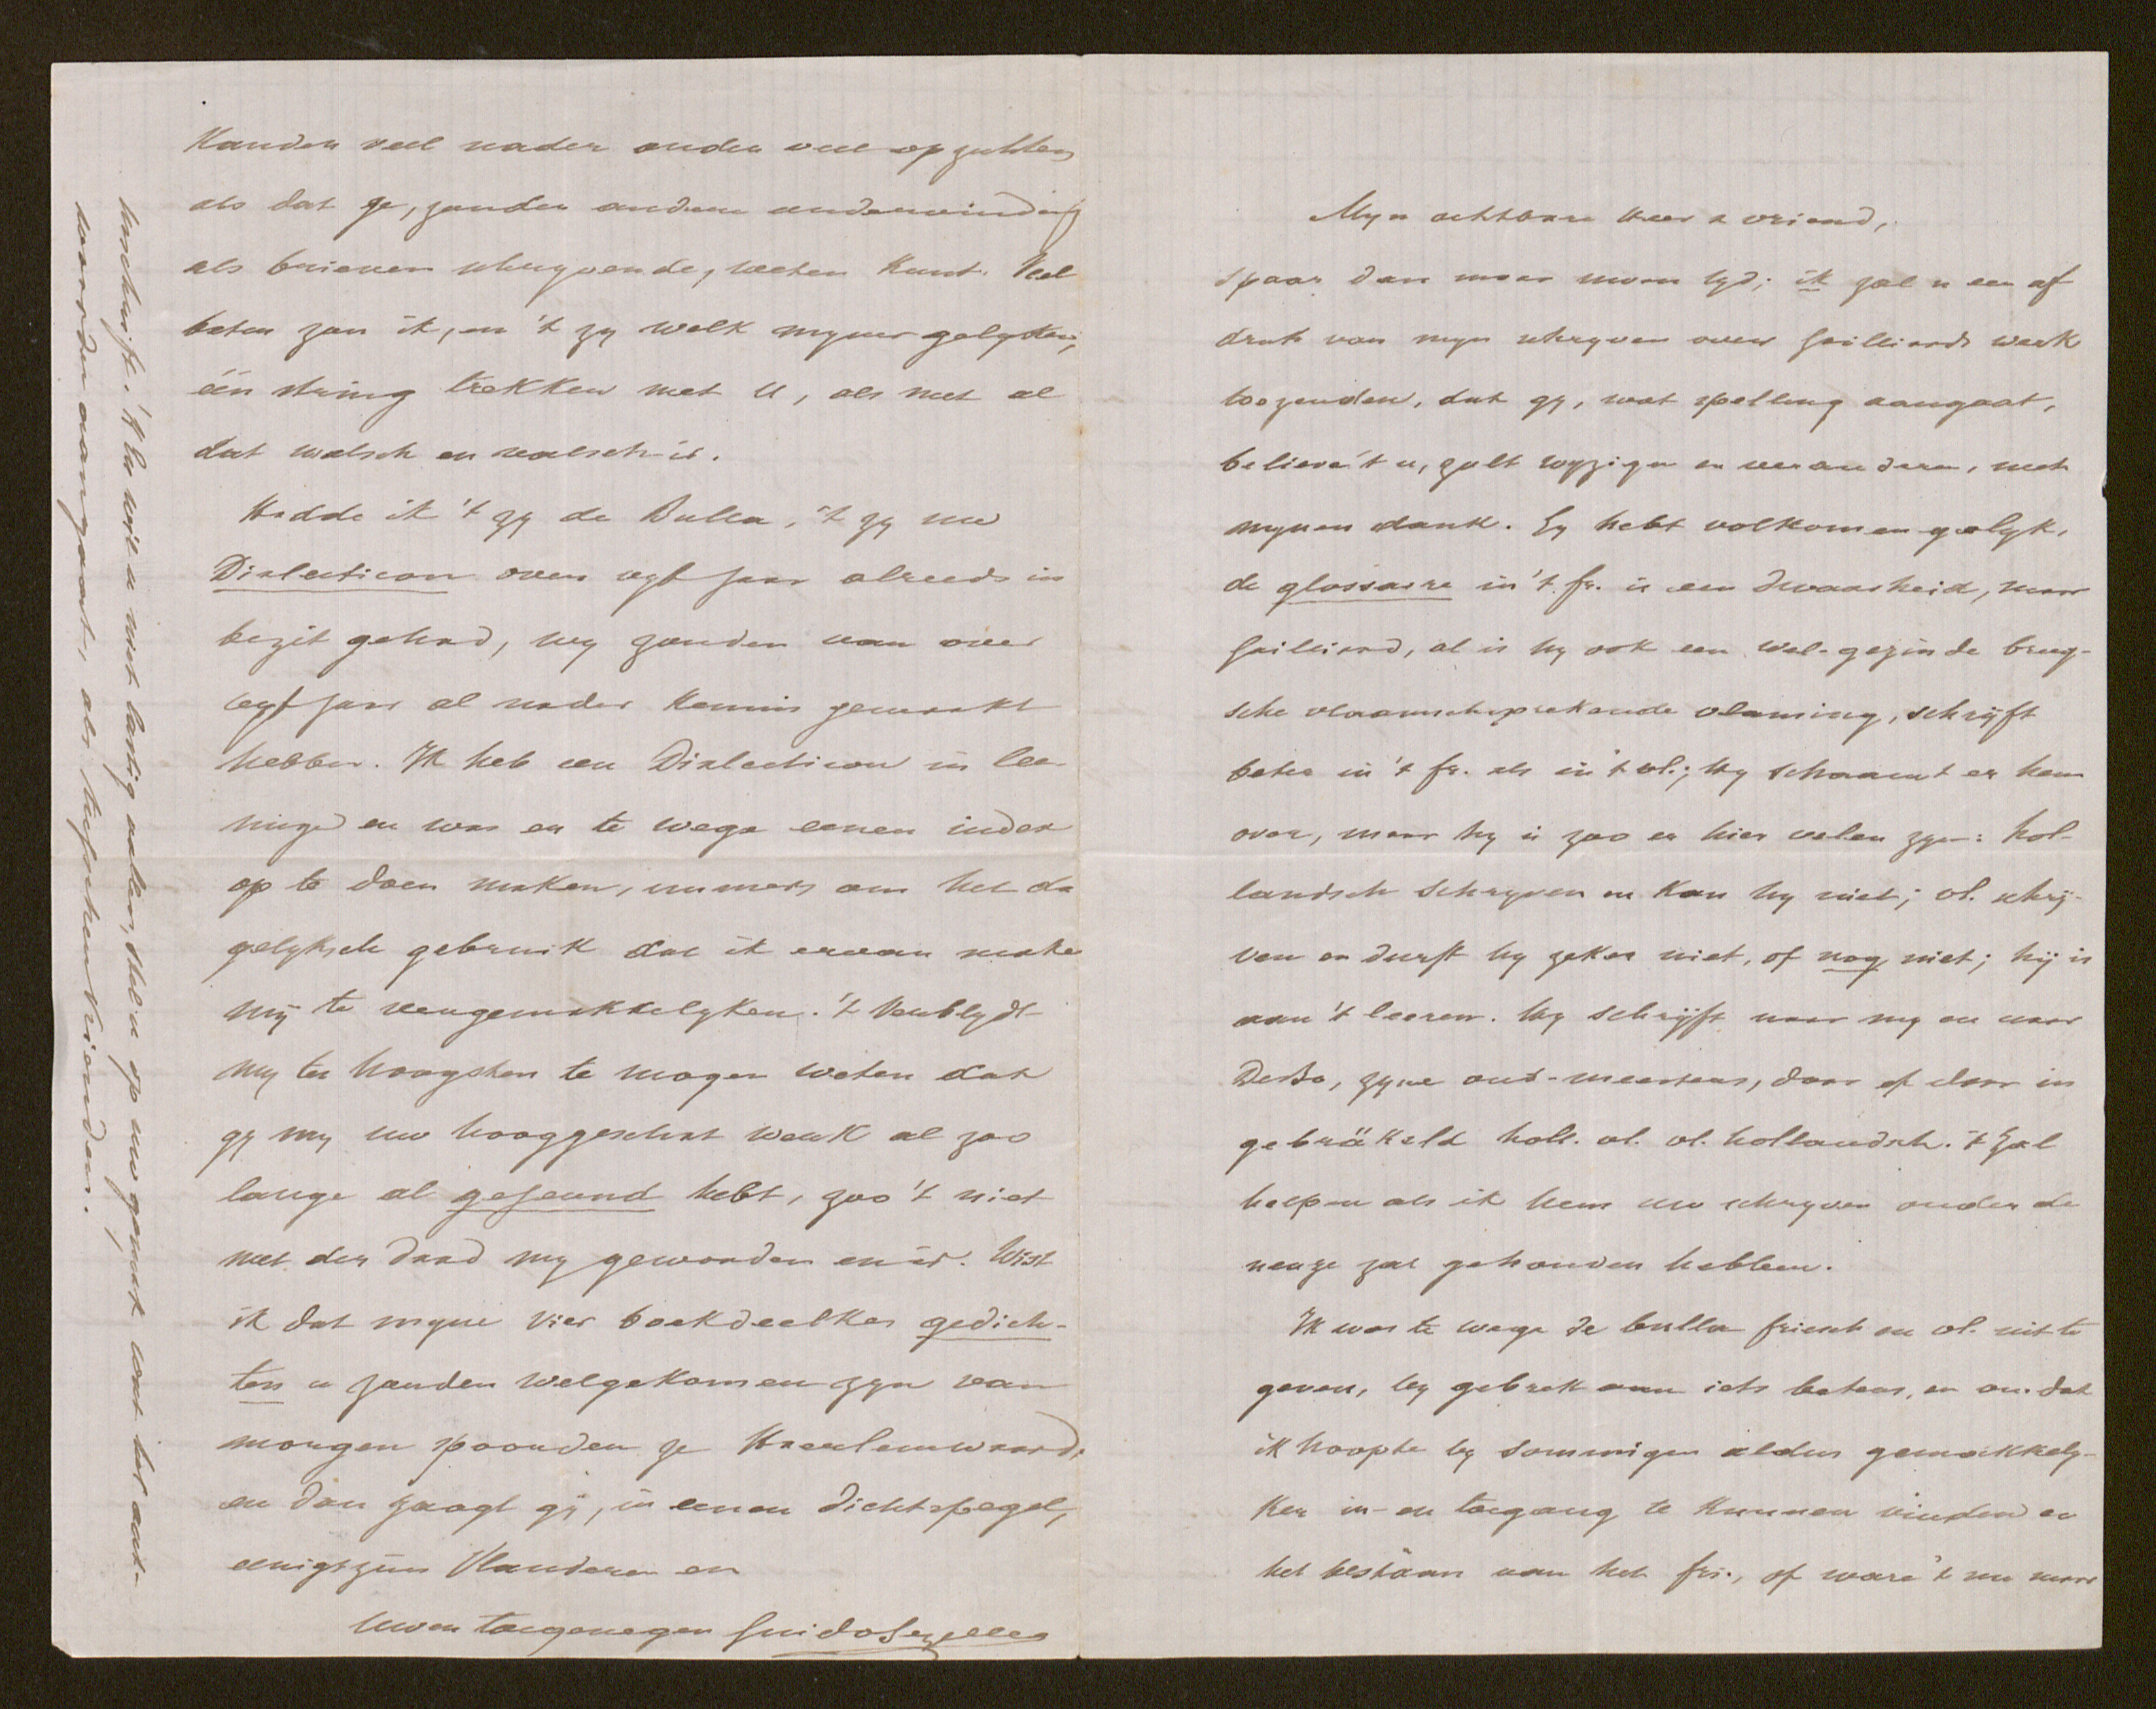 Kanden veel nader onder veel opzichten
als dat ge, zonder andere ondervinding
als brieven schryvende, weten kunt. Veel
beter zou ik, en 't zy welk myner gelyken,
één string trekken met U, als met al
dat walsch en valsch is.
Hadde ik 't zy de Bulla, 't zy uw
Dialecticon over vyf jaar alreeds in
bezit gehad, wy zouden van over
vyf jaar al nader kennis gemaakt
hebben. Ik heb een Dialecticon in lee-
ninge en was er te wege eenen index
op te doen maken, immers om het da
gelyksch gebruik dat ik ervan make
mij te vergemakkelyken. 't Verblydt
my ten hoogsten te mogen weten dat
gy my uw hooggeschat werk al zoo
lange al gejeund hebt, zoo 't niet
met der daad my geworden en is. Wist
ik dat myne vier boekdeelkes gedich-
ten u zouden welgekomen zyn van
morgen spoorden ze Haarlemwaards
en dan zaagt gij, in eenen dichtspegel,
eenigszins Vlanderen en
Uwen toegenegen Guido Gezelle
Naschrift. 'K en wil u niet lastig vallen, stel u op uw gemak wat het ant-
woorden aangaat, als tusschen vrienden.
Myn achtbare heer & vriend,
Spaar dan maar uwen tyd; ik zal u een af
druk van myn schryven over Gailliards werk
toezenden, dat gy, wat spelling aangaat,
believe 't u, zult wyzigen en veranderen, met
mynen dank. Gy hebt volkomen gelyk,
de glossaire in 't fr. is een dwaasheid, maar
Gailliard, al is hy ook een wel-gezinde brug-
sche vlaamschsprekende vlaming, schrijft
beter in 't fr. als in 't vl.; hy schaamt er hem
over, maar hy is zoo er hier velen zyn: hol-
landsch schryven en kan hy niet; vl. schrij-
ven en durft hy zeker niet, of nog niet; hij is
aan 't leeren. Hy schrijft naar my en naar
DeBo, zyne oud-meesters, door ef door in
gebräkeld holl. vl. vl. hollandsch. 't Zal
helpen als ik hem uw schryven onder de
neuze zal gehouden hebben.
Ik was te wege de bulla friesch en vl. uit te
geven, by gebrek aan iets beters, en omdat
ik hoopte by sommigen aldus gemakkely-
ker in- en toegang te kunnen vinden en
het bestaan van het fri., of ware 't nu maar